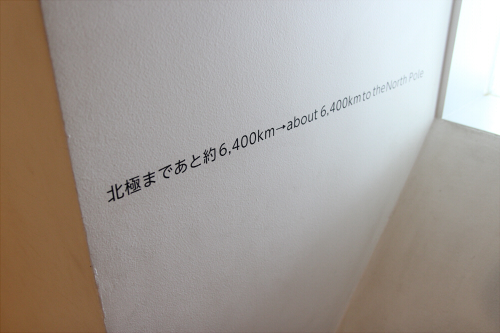 北極まであと約6,400km→about 6,400km to the North Pole